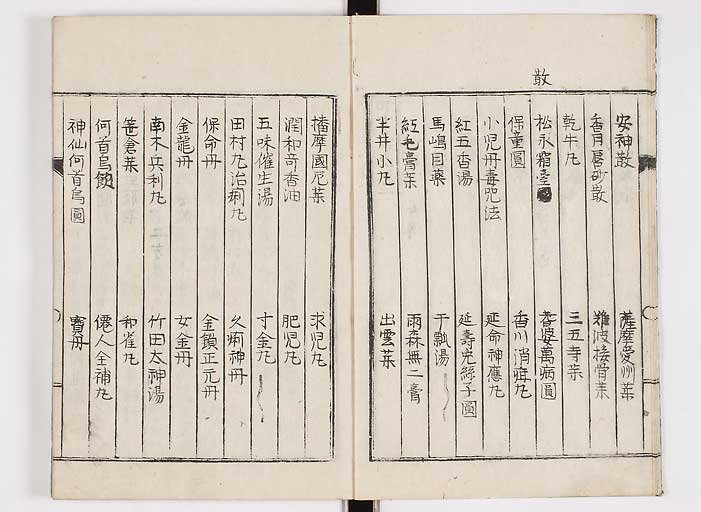 散
安神散　薩摩愛州薬
香月唇砂散　難波接骨薬
乾牛丸　三五寺薬
松永宿　耆婆萬病圓
保童圓　香川消痞丸
小児丹毒呪法　延命神應丸
紅五香湯　延壽兎絲子圓
馬嶋目薬　干瓢湯
紅毛膏薬　雨森無二膏
半井小丸　出雲薬
播摩國尼薬　求児丸
潤和奇香油　肥児丸
五味催生湯　寸金丸
田村丸治痢丸　久痢神丹
保命丹　金鎖正元丹
金龍丹　女金丹
南木兵利丸　竹田太神湯
笹倉薬　和雀丸
何首烏飲　僊人全補丸
神仙何首烏圓　寶丹